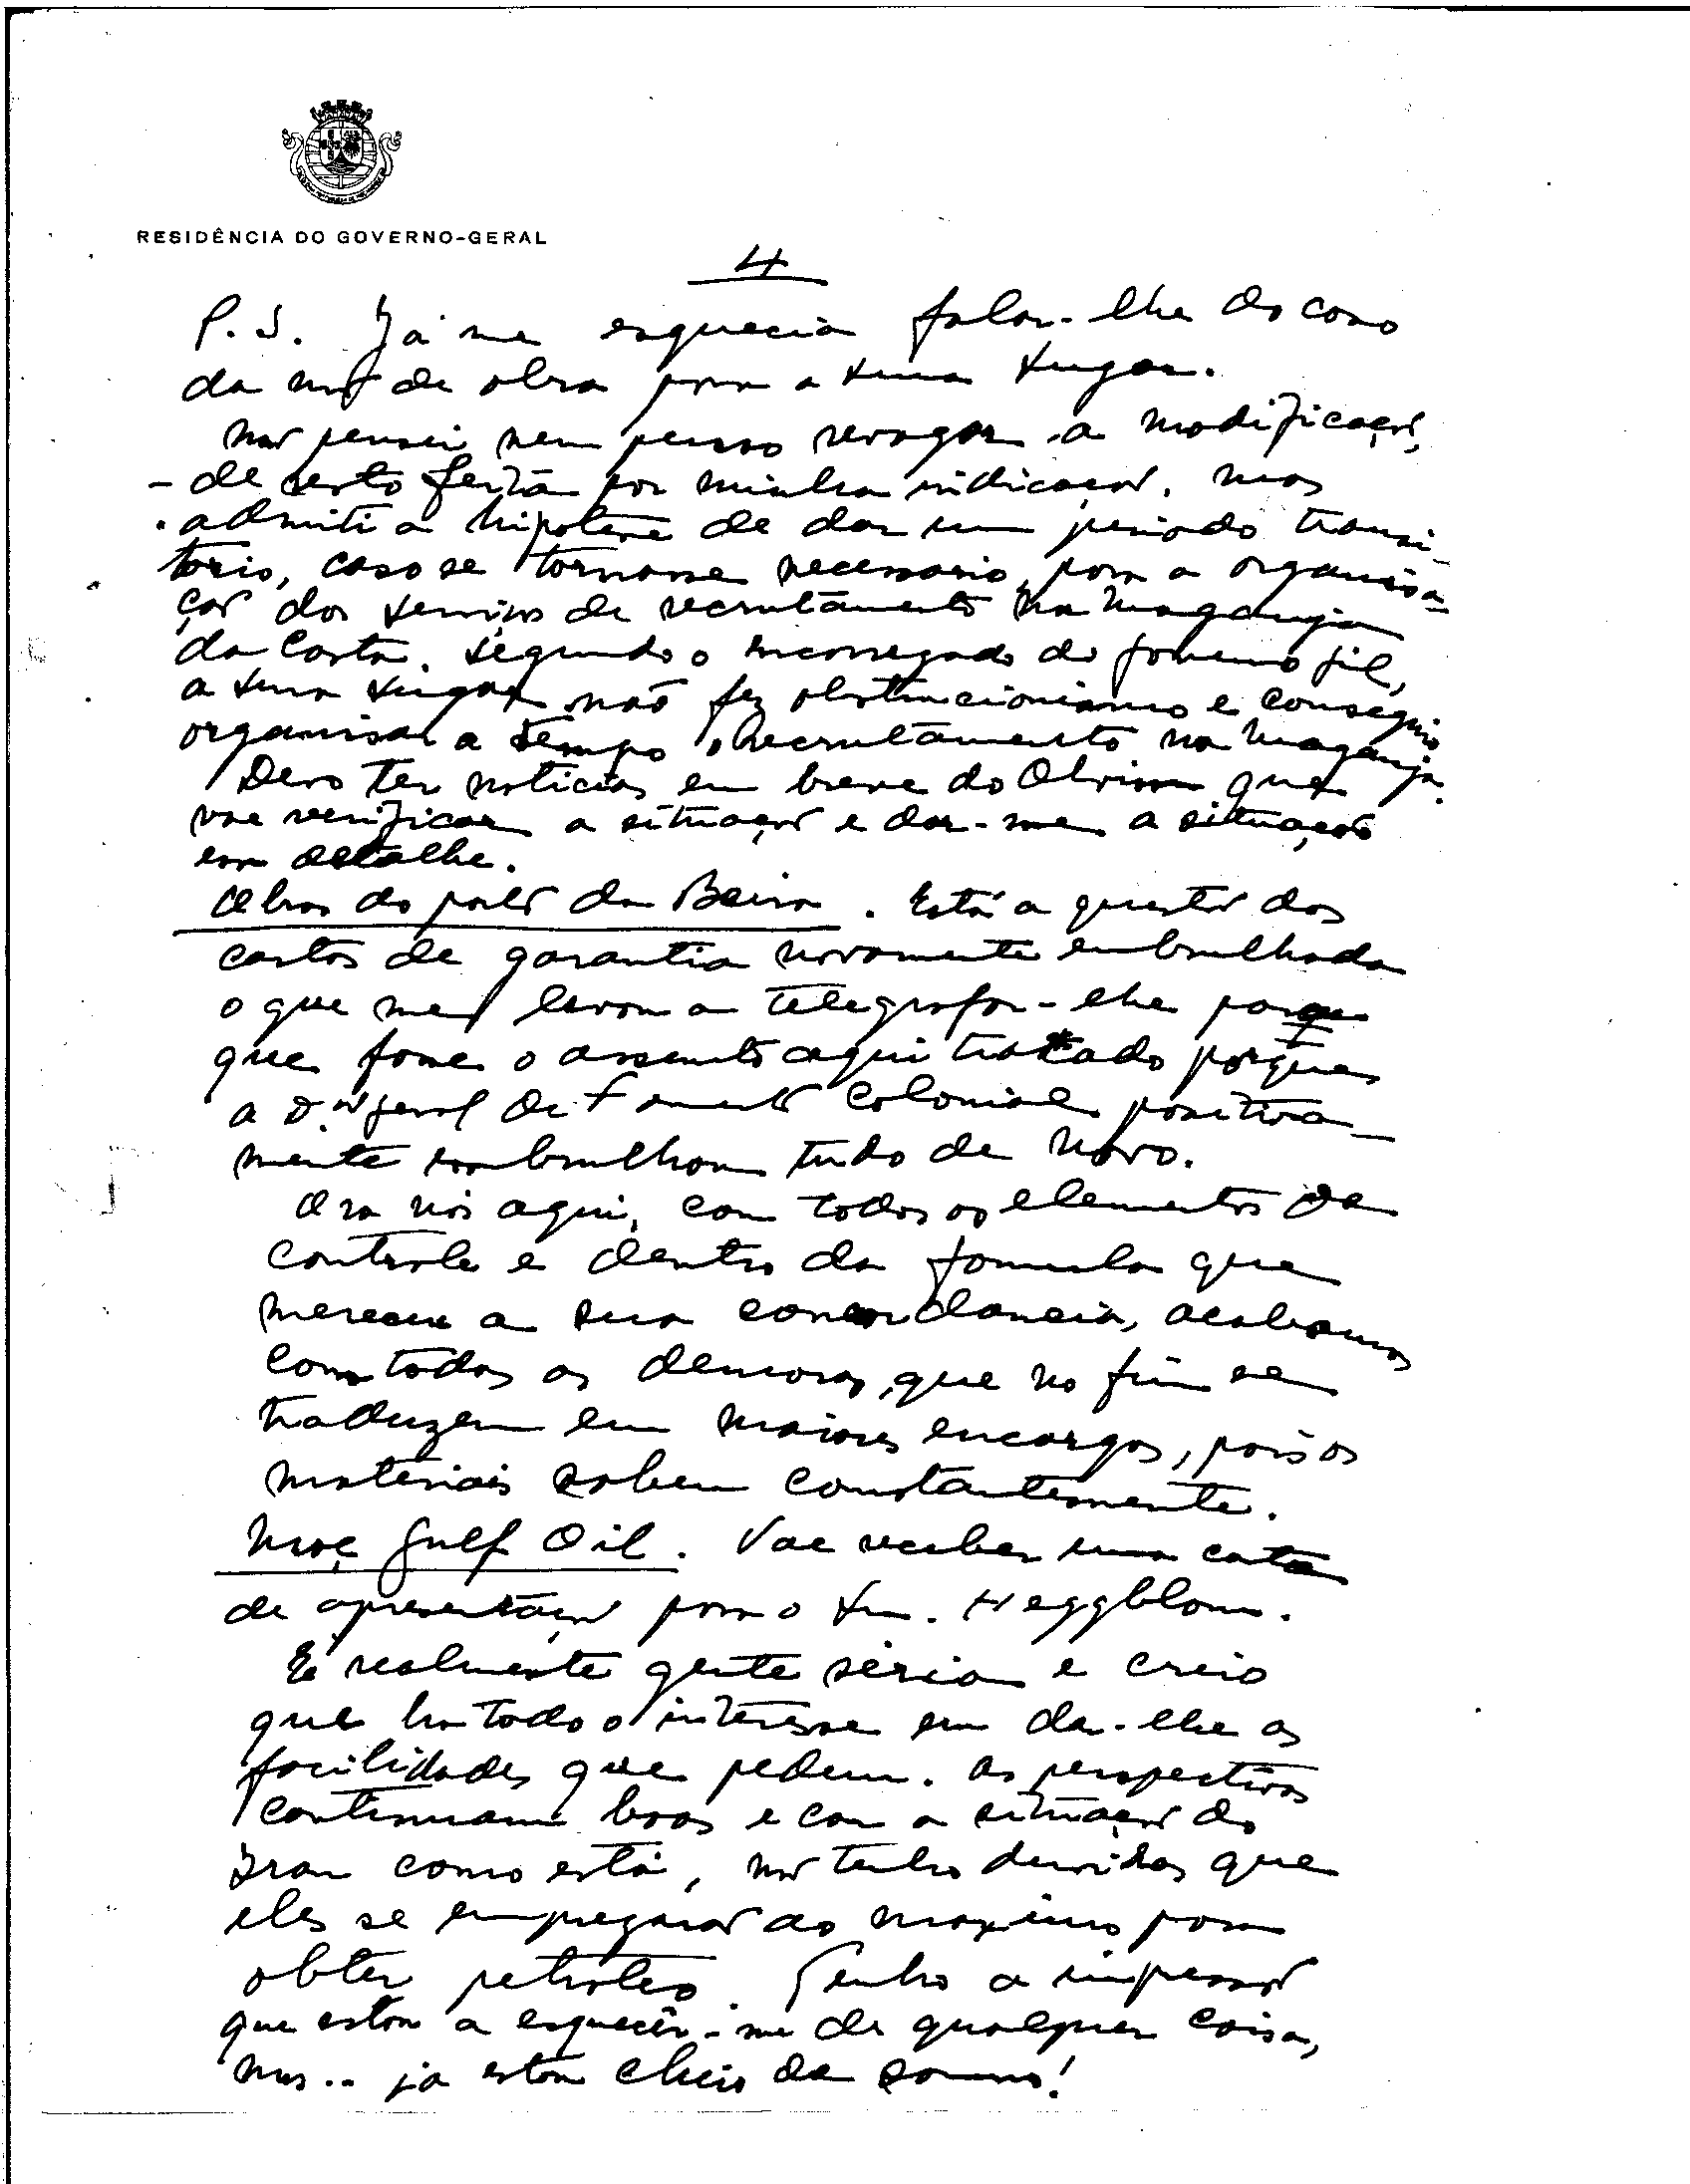 RESIDÊNCIA DO GOVERNO-GERAL
4
P.S. Já me esquecia falar-lhe do caso
da mão de obra para a Sena Sugar.
Não pensei nem penso revogar a modificação,
- de certo feita por minha indicação. mas
admiti a hipotese de dar um periodo transi-
torio, caso se tornasse necessario, para a organisa-
ção dos serviços de recrutamento na Maganja
da Costa. Segundo o encarregado do governo Gil,
a Sena Sugar não fez obstrucionismo e conseguio
organisar a tempo o recrutamento na Maganja.
Devo ter noticias em breve do que
vae verificar a situação e dar-me a situação
em detalhe.
Obras do porto da Beira. Está a questão das
cartas de garantia novamente embrulhada
o que me levou a telegrafar-lhe para
que fosse o assunto aqui tratado porque
a D.ão Geral de Fomento Colonial positiva-
mente embrulhou tudo de novo.
Ora nós aqui, com todos os elementos de
controle e dentro da formula que
mereceu a sua concordancia, acabamos
com todas as demoras, que no fim se
traduzem em maiores encargos, pois os
materiais sobem constantemente.
Moç Gulf Oil. Vae receber uma carta
de apresentação para o Sr. Heggblom.
É realmente gente séria e creio
que ha todo o interesse em da-lhe as
facilidades que pedem. As perspectivas
continuam boas e com a situação do
Iran como está, não tenho duvidas que
eles se empregarão ao maximo para
obter petroleo. Tenho a impressão
que estou a esquecêr-me de qualquer coisa,
mas.. já estou cheio de somno!